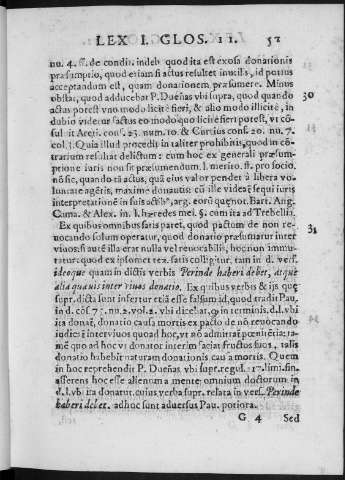 LEX I. GLOS. 11. 52
nu. 4. ff. de condit. indeb. quod ita est exosa donationis
præsumptio, quod etiam si actus resultet inutilis, id potius
acceptandum est, quam donationem præsumere. Minus
obstat, quod adducebat P. Dueñas vbi supra, quod quando 30
actus potest vno modo licitè fieri, & alio modo illicitè, in
dubio videtur factus eo modo quo licitè fieri potest, vt cō
suluit Areti. cons. 23. num. 10. & Curtius cons. 20. nu. 7.
col. 1. Quia illud procedit in taliter prohibitis, quod in cō
trarium resultat delictum: cum hoc ex generali præsum-
ptione iuris non sit præsumendum l. merito. ff. pro socio.
nō sic, quando tā actus, quā eius valor pendet à libera vo
luntate agētis, maximè donantis: cū ille videat̃ sequi iuris
interpretationē in suis actib⁹, arg. eorū quę not. Bart. Ang.
Cuma. & Alex. in l. hæredes mei. §. cum ita ad Trebellia.
Ex quibus omnibus satis patet, quod pactum de non re- 31
uocando solum operatur, quod donatio præsumatur inter
viuos: si autē illa erat nulla vel reuocabilis, hoc non immu-
tatur: quod ex ipsomet tex. satis colligitur, tam in d. vers.
ideoque quam in dictis verbis Perinde haberi debet, atque
alia quauis inter viuos donatio. Ex quibus verbis & ijs quę
supr. dicta sunt infertur etiā esse falsum id, quod tradit Pau.
in d. cōs. 75. nu. 2. vol. 2. vbi dicebat, q in terminis. d. l. vbi
ita donat̃, donatio causa mortis ex pacto de nō reuocādo
iudicat̃ inter viuos quoad hoc, vt nō admittat̃ pœnitētia: ta
mē quo ad hoc vt donator interim faciat fructus suos, talis
donatio habebit naturam donationis causa mortis. Quem
in hoc reprehendit P. Dueñas vbi supr. regul. 217. limi. fin.
asserens hoc esse alienum a mente omnium doctorum in
d. l. vbi ita donatur. cuius verba supr. relata in vers. Perinde
haberi debet. adhoc sunt aduersus Pau. potiora.
G 4 Sed